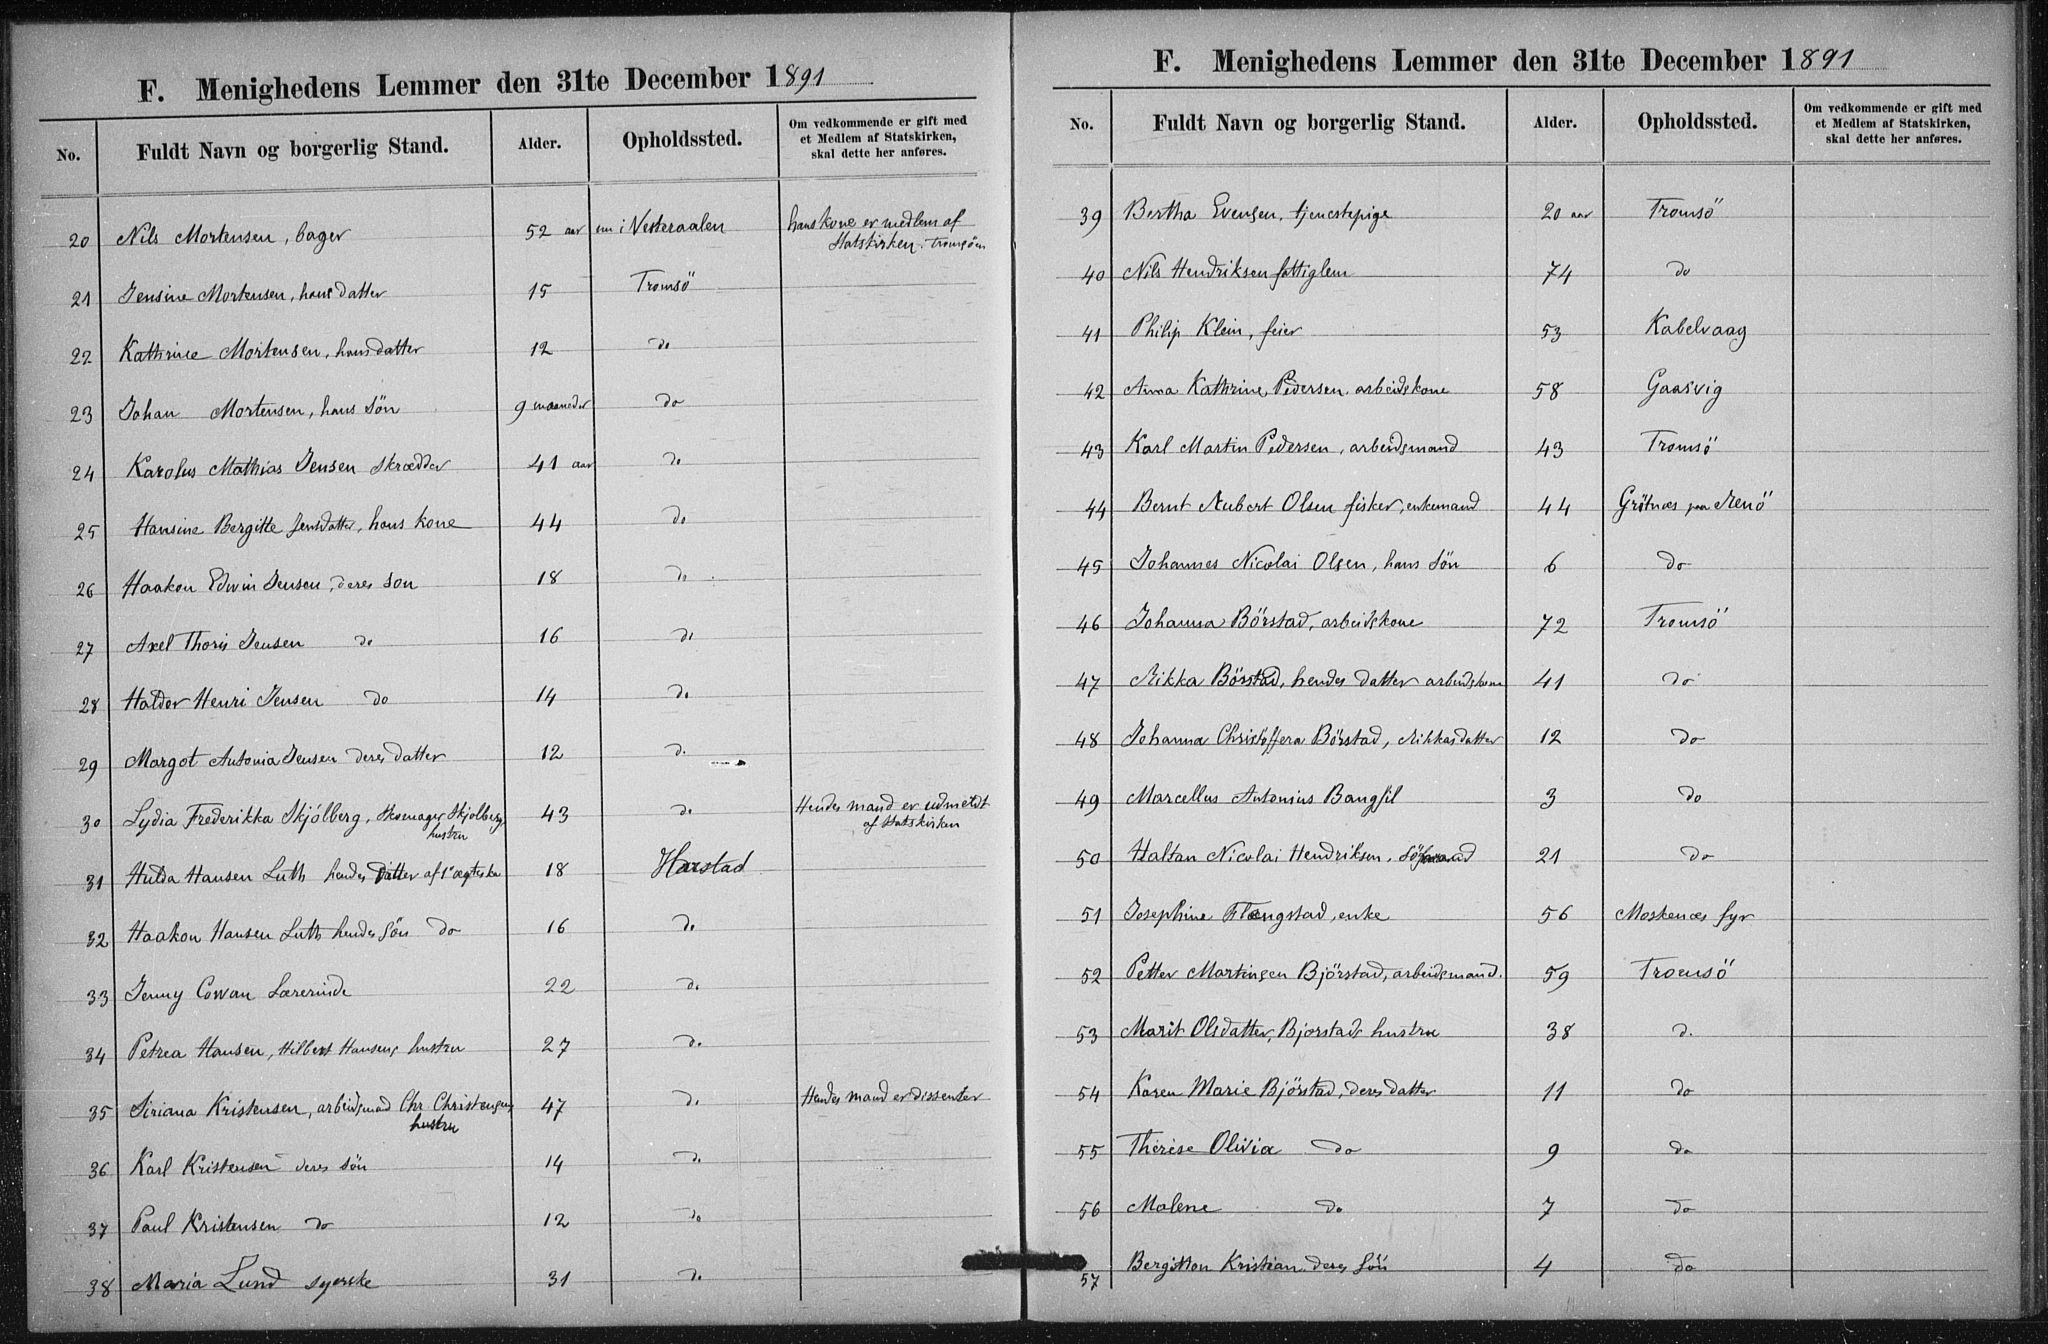 F. Menighedens Lemmer den 31te December 1891
No. Fuldt Navn og borgerlig Stand. Alder. Opholdssted. Om vedkommende er gift med
et Medlem af Statskirken,
skal dette her anføres.
20 Nils Mortensen, bager 52 aar nu i Vesteraalen hans kone er medlem af
Statskirken, Tromsöen
21 Jensine Mortensen, hans datter 15 Tromsö
22 Kathrine Mortensen, hans datter 12 do
23 Johan Mortensen, hans Sön 9 maaneder do
24 Karolus Mathias Jensen Skrædder 41 aar do
25 Hansine Bergitte Jensdatter, hans kone 44 do
26 Haakon Edwin Jensen, deres son 18 do
27 Axel Thoris Jensen do 16 do
28 Haldor Henri Jensen do 14 do
29 Margot Antonia Jensen deres datter 12 do
30 Lydia Frederikka Skjölberg, Skomager Skjölberg 43 do Hendes mand er udmeldt
hustru af Statskirken
31 Hulda Hansen Luth hendes datter af 1ste 18 Harstad
32 Haakon Hansen Luth hendes Sön do 16 do
33 Jenny Cowan Lærerinde 22 do
34 Petrea Hansen, Hilbert Hansens hustru 27 do
35 Siriana Kristensen, arbeidsmad Chr Christensens 47 do Hendes mand er dissenter
hustru
36 Karl Kristensen deres sön 14 do
37 Paul Kristensen do 12 do
38 Maria Lund syerske 31 do
F. Menighedens Lemmer den 31te December 1891
No. Fuldt Navn og borgerlig Stand. Alder. Opholdssted. Om vedkommende er gift med
et Medlem af Statskirken,
skal dette her anføres.
39 Bertha Evensen, tjenestepige 20 aar Tromsö
40 Nils Hendriksen fattiglem 74 do
41 Philip Klein, feier 53 Kabelvaag
42 Anna Kathrine Pedersen, arbeidskone 58 Gaasvig
43 Karl Martin Pedersen, arbeidsmand 43 Tromsö
44 Bernt Olsen fisker, enkemand 44 Grötnæs paa Renö
45 Johannes Nicolai Olsen, hans Sön 6 do
46 Johanna Börstad, arbeidskone 72 Tromsö
47 Rikka Börstad, hendes datter arbeidskone 41 do
48 Johanna Christoffera Börstad, Rikkas datter 12 do
49 Marcellus Antonius Bangfil 3 do
50 Halfan Nicolai Hendriksen, Sömand 21 do
51 Josephine Flængstad, enke 56 Moskenæs fyr
52 Petter Martinsen Björstad, arbeidsmand. 59 Tromsö
53 Marit Olsdatter, Bjorstads hustru 38 do
54 Karen Marie Björstad, deres datter 11 do
55 Therese Olivia do 9 do
56 Malene do 7 do
57 Kristian deres Sön 4 do